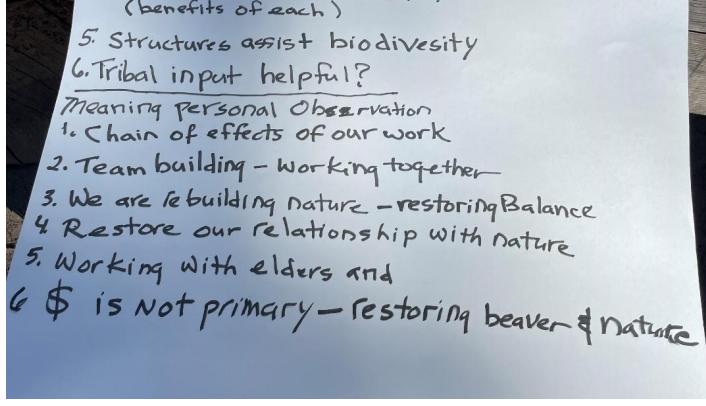 (benefits of each)
5. Structures assist biodivesity
6. Tribal input helpful?
Meaning personal Observation
1. Chain of effects of our work
2. Team building - working together
3. We are rebuilding nature - restoring Balance
4 Restore our relationship with nature
5. Working with elders and
6 $ is Not primary - restoring beaver & nature